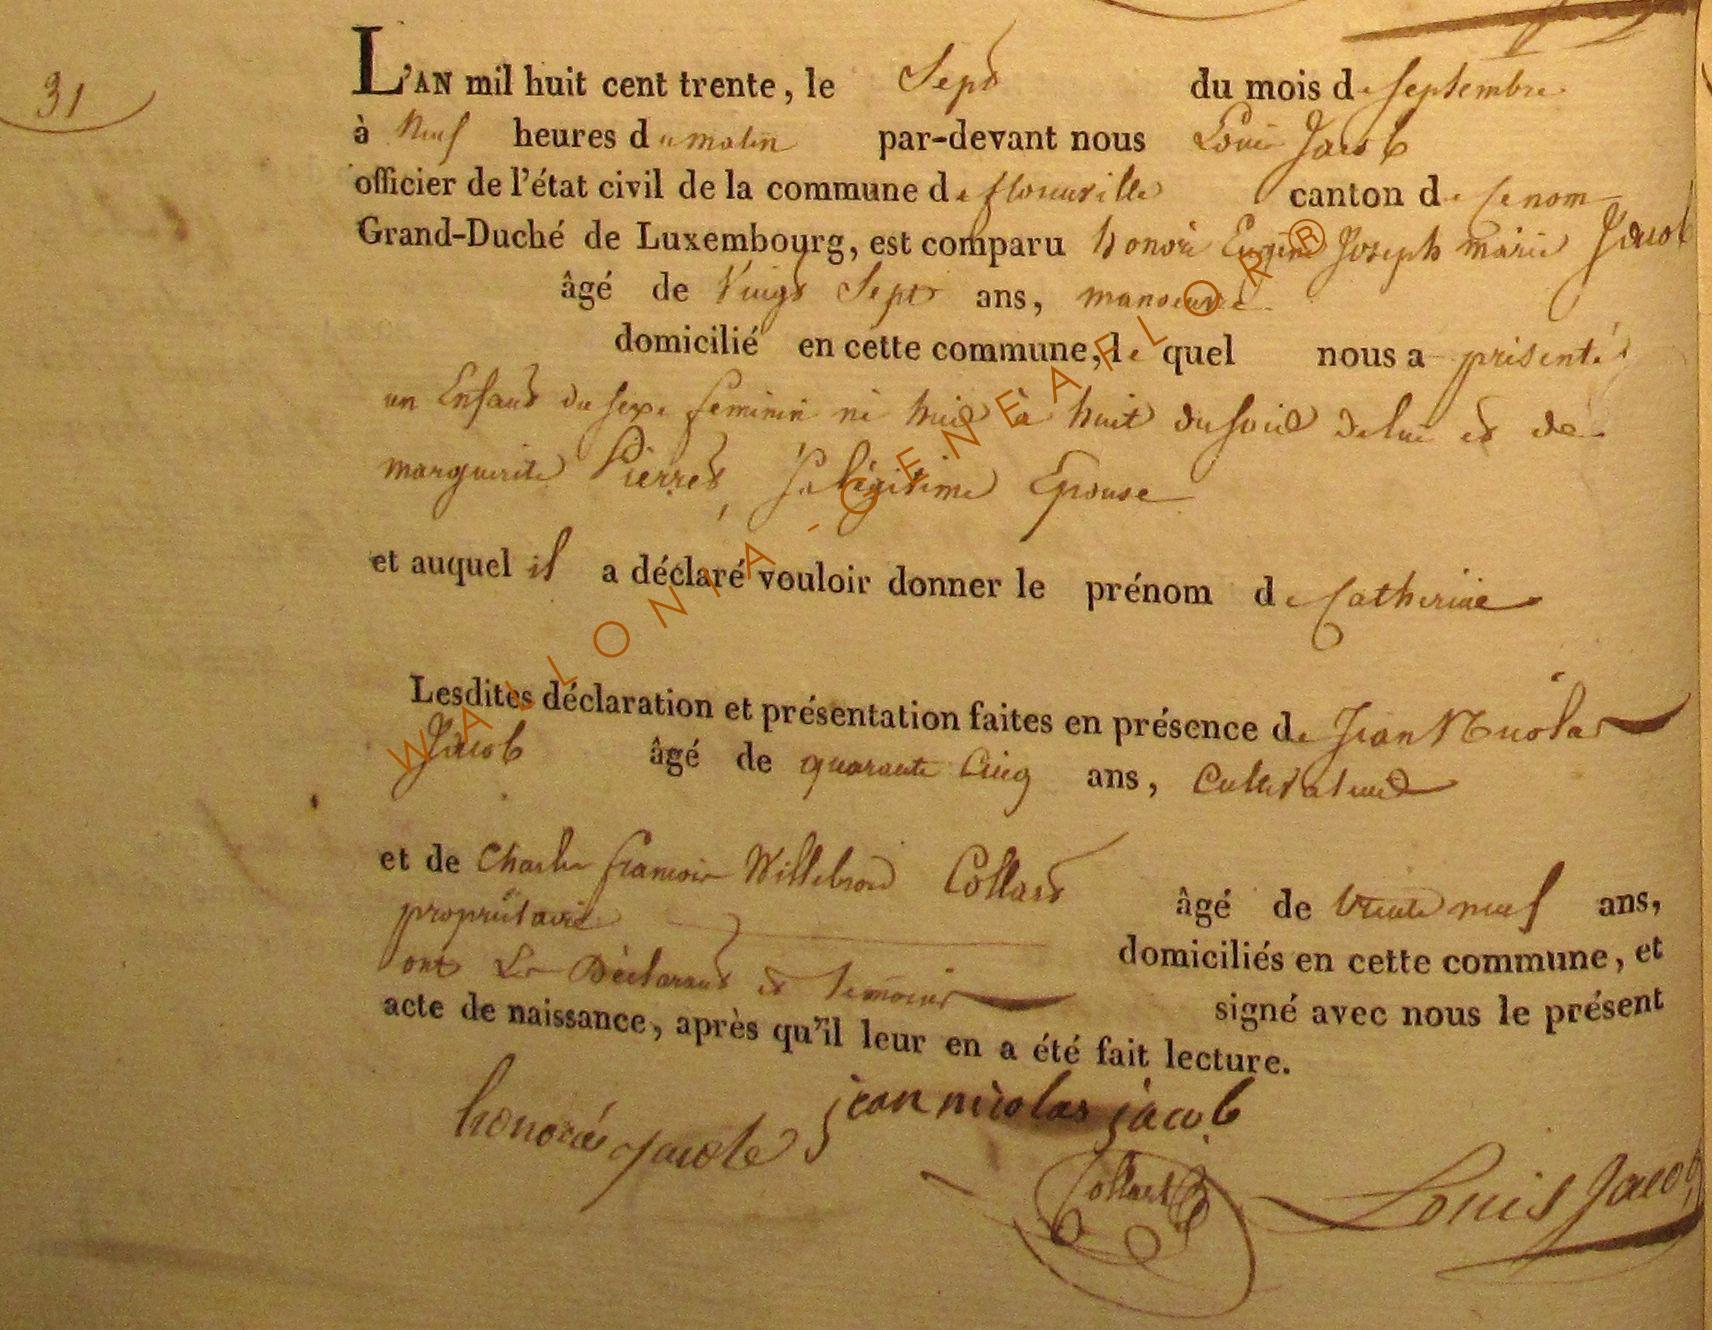 31
L'AN mil huit cent trente, le Sept du mois de septembre
à Neuf heures du matin par-devant nous Louis Jacob
officier de l'état civil de la commune de florenville canton de ce nom
Grand-Duché de Luxembourg, est comparu honoré Eugène Joseph marie Jacob
âgé de Vingt Sept ans, manoeuvre
domicilié en cette commune, le quel nous a présenté
un Enfant du sexe feminin né hier à huit du soir de lui et de
marguerite Pierret, Sa légitime Epouse
et auquel il a déclaré vouloir donner le prénom de Catherine
Lesdites déclaration et présentation faites en présence de Jean Nicolas
Jacob âgé de quarante Cinq ans, Cultivateur
et de Charles francois Willebrord Collard âgé de trente neuf ans,
propriétaire domiciliés en cette commune, et
ont Le Déclarant et temoins signé avec nous le présent
acte de naissance, après qu'il leur en a été fait lecture.
honoré jacob jean nicolas jacob
Collard Louis Jacob
WALLONIA-GENEAFLOR®